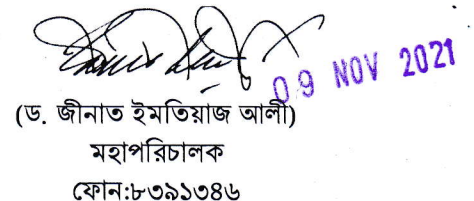 09 NOV 2021
(ড. জীনাত ইমতিয়াজ আলী)
মহাপরিচালক
ফোন:৮৩৯১৩৪৬